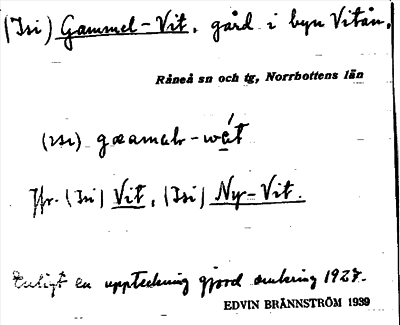 (Isi) Gammel-Vit, gård i byn Vitån.
Råneå sn och tg, Norrbottens län
(isi) gœamalr-
Jfr. (Isi) Vit, (Isi) Ny-Vit.
Enligt en uppteckning gjord omkring 1927.
EDVIN BRÄNNSTRÖM 1939